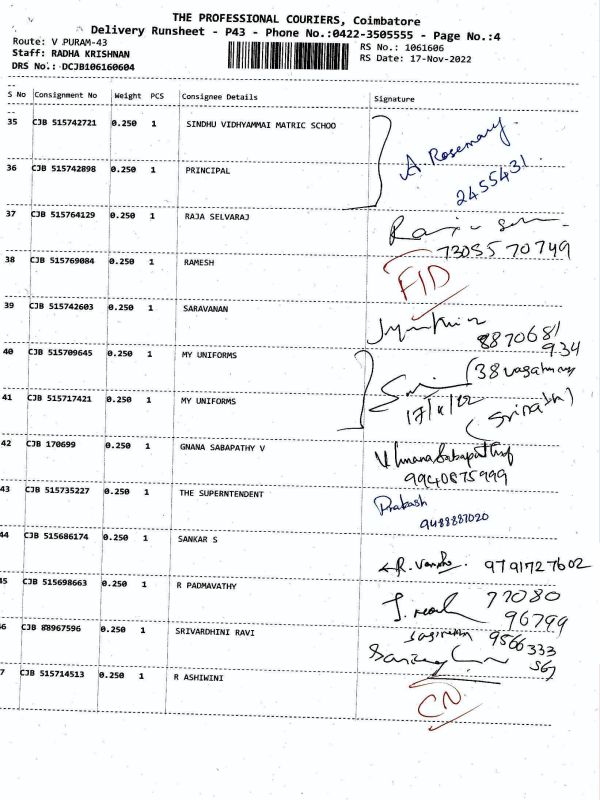 THE PROFESSIONAL COURIERS, Coimbatore
Delivery Runsheet - P43 - Phone No.:0422-3505555 - Page No.:4
Route: V PURAM-43
Staff: RADHA KRISHNAN
DRS No.: DCJB106160604
RS No.: 1061606
RS Date: 17-Nov-2022
S No Consignment No Weight PCS Consignee Details Signature
35 CJB 515742721 0.250 1 SINDHU VIDHYAMMAI MATRIC SCHOO
A. Rosemary.
36 CJB 515742898 0.250 1 PRINCIPAL
2455431
37 CJB 515764129 0.250 1 RAJA SELVARAJ
73055 70749
38 CJB 515769084 0.250 1 RAMESH FID
39 CJB 515742603 0.250 1 SARAVANAN
8870681
934
40 CJB 515709645 0.250 1 MY UNIFORMS
(38
41 CJB 515717421 0.250 1 MY UNIFORMS
17/11/22
42 CJB 170699 0.250 1 GNANA SABAPATHY V
9940875999
43 CJB 515735227 0.250 1 THE SUPERNTENDENT Prakash
9488887020
44 CJB 515686174 0.250 1 SANKAR S
9791727602
45 CJB 515698663 0.250 1 R PADMAVATHY
77080
96799
46 CJB 88967596 0.250 1 SRIVARDHINI RAVI
9566333
567
7 CJB 515714513 0.250 1 R ASHIWINI
CN